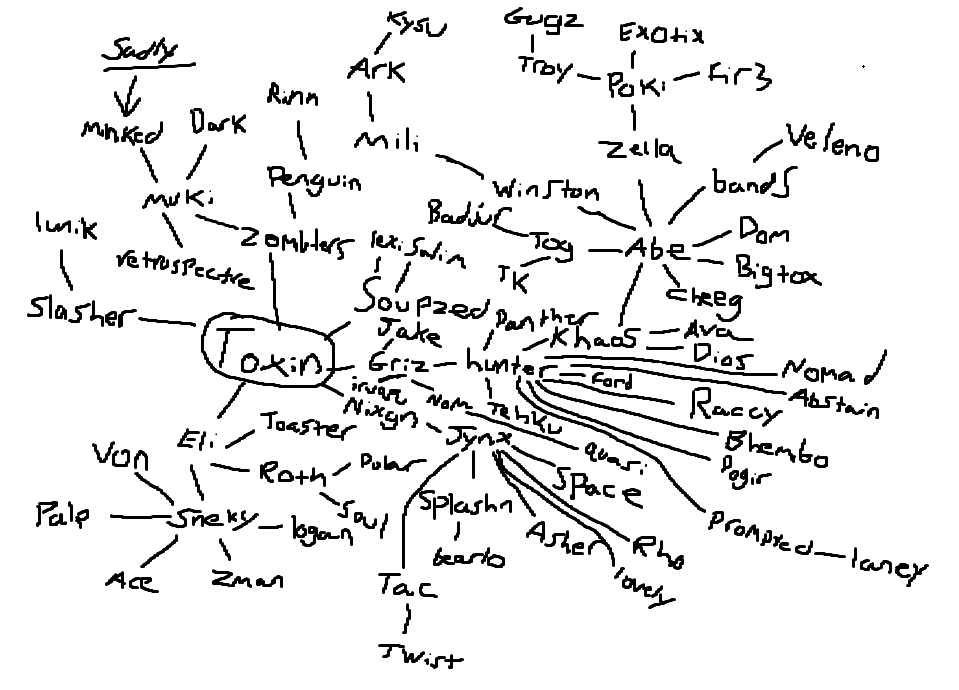 Kysu
Gugz
Exotix
Sadly
Ark
Troy
Poki
Fir3
Rinn
Minked
Dark
Mili
Zella
Veleno
Penguin
Winston
bands
Muki
Badjur
lunik
Zomblers
lexi
Swim
Tog
Abe
Dom
retrospectre
TK
Bigtox
Cheeg
Slasher
Soupzed
Panther
Jake
Khaos
Ava
Dios
Toxin
Griz
hunter
Nomad
Ford
Abstain
Nom
Nixgn
Tenku
Raccy
Toaster
Eli
Jynx
Bhembo
quasi
Pogir
Von
Roth
Pular
Space
Splashn
Soul
Palp
Sneky
logan
Asher
Rho
Prompted
laney
bearlo
Ace
Zman
Tac
lovely
Twist